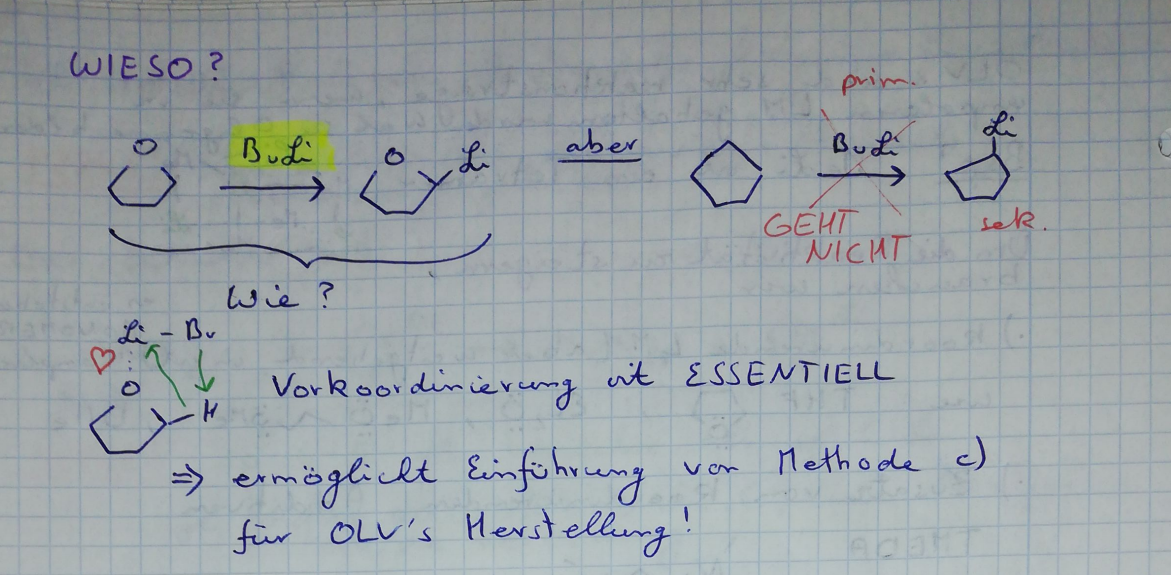 WIESO?
prim.
O BuLi O Li aber BuLi Li
GEHT NICHT sek.
Wie?
Li - Bu
O
H
Vorkoordinierung ist ESSENTIELL
⇒ ermöglicht Einführung von Methode c)
für OLV's Herstellung!